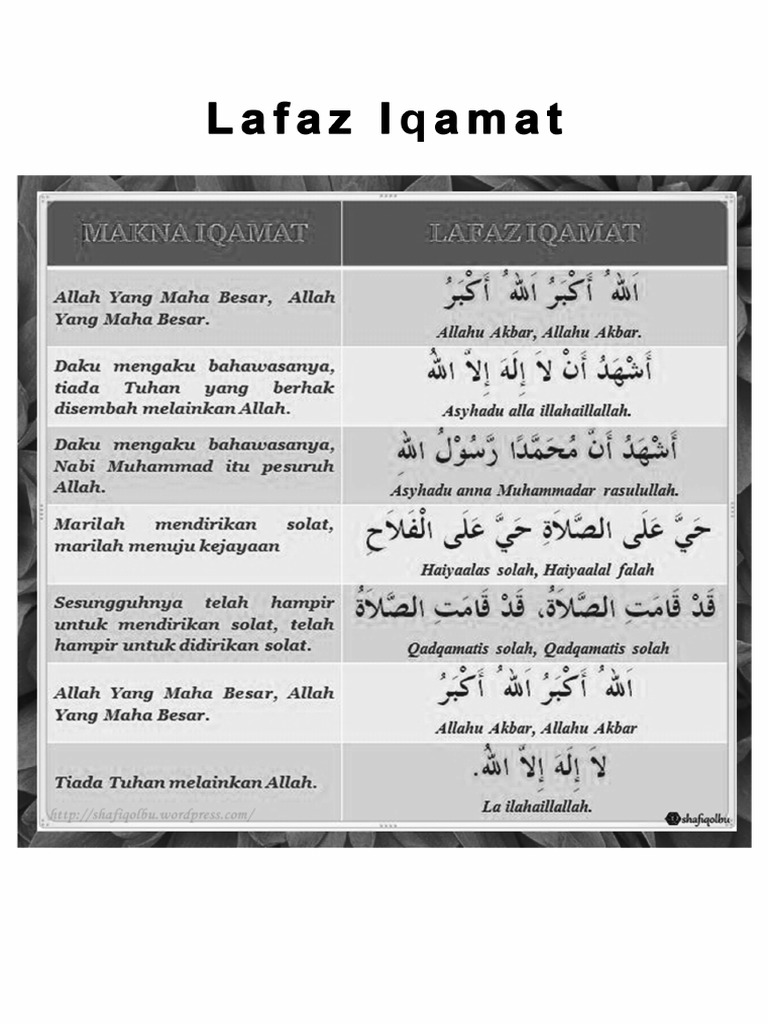 Lafaz Iqamat
MAKNA IQAMAT
LAFAZ IQAMAT
Allah Yang Maha Besar, Allah
Yang Maha Besar.
اَللهُ أَكْبَرُ اَللهُ أَكْبَرُ
Allahu Akbar, Allahu Akbar.
Daku mengaku bahawasanya,
tiada Tuhan yang berhak
disembah melainkan Allah.
أَشْهَدُ أَنْ لاَ إِلَهَ إِلاَّ اللهُ
Asyhadu alla illahaillallah.
Daku mengaku bahawasanya,
Nabi Muhammad itu pesuruh
Allah.
أَشْهَدُ أَنَّ مُحَمَّدًا رَّسُوْلُ اللهِ
Asyhadu anna Muhammadar rasulullah.
Marilah mendirikan solat,
marilah menuju kejayaan
حَيَّ عَلَى الصَّلاَةِ حَيَّ عَلَى الْفَلاَحِ
Haiyaalas solah, Haiyaalal falah
Sesungguhnya telah hampir
untuk mendirikan solat, telah
hampir untuk didirikan solat.
قَدْ قَامَتِ الصَّلاَةُ، قَدْ قَامَتِ الصَّلاَةُ
Qadqamatis solah, Qadqamatis solah
Allah Yang Maha Besar, Allah
Yang Maha Besar.
اَللهُ أَكْبَرُ اَللهُ أَكْبَرُ
Allahu Akbar, Allahu Akbar
Tiada Tuhan melainkan Allah.
لاَ إِلَهَ إِلاَّ اللهُ.
La ilahaillallah.
http://shafiqolbu.wordpress.com/
shafiqolbu